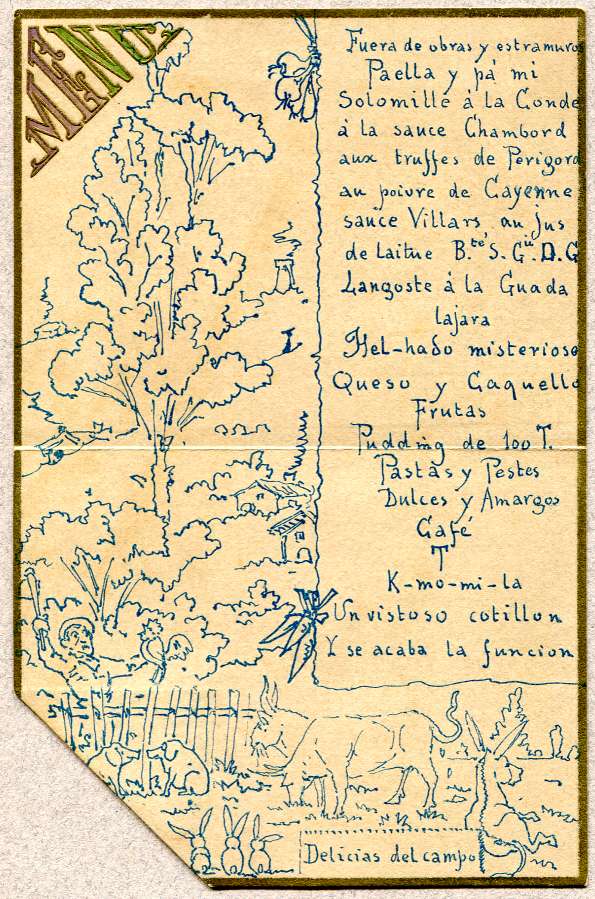 MENU
Fuera de obras y estramuros
Paella y pá mi
Solomille à la Conde
à la sauce Chambord
aux truffes de Perigord
au poivre de Cayenne
sauce Villars au jus
de laitue B.té S. G.ü D. G
Langoste à la Guada
lajara
Hel-hado misterioso
Queso y Caquello
Frutas
Pudding de 100 T.
Pastàs y Pestes
Dulces y Amargos
Café
T
K-mo-mi-la
Un vistoso cotillon
Y se acaba la funcion
Delicias del campo